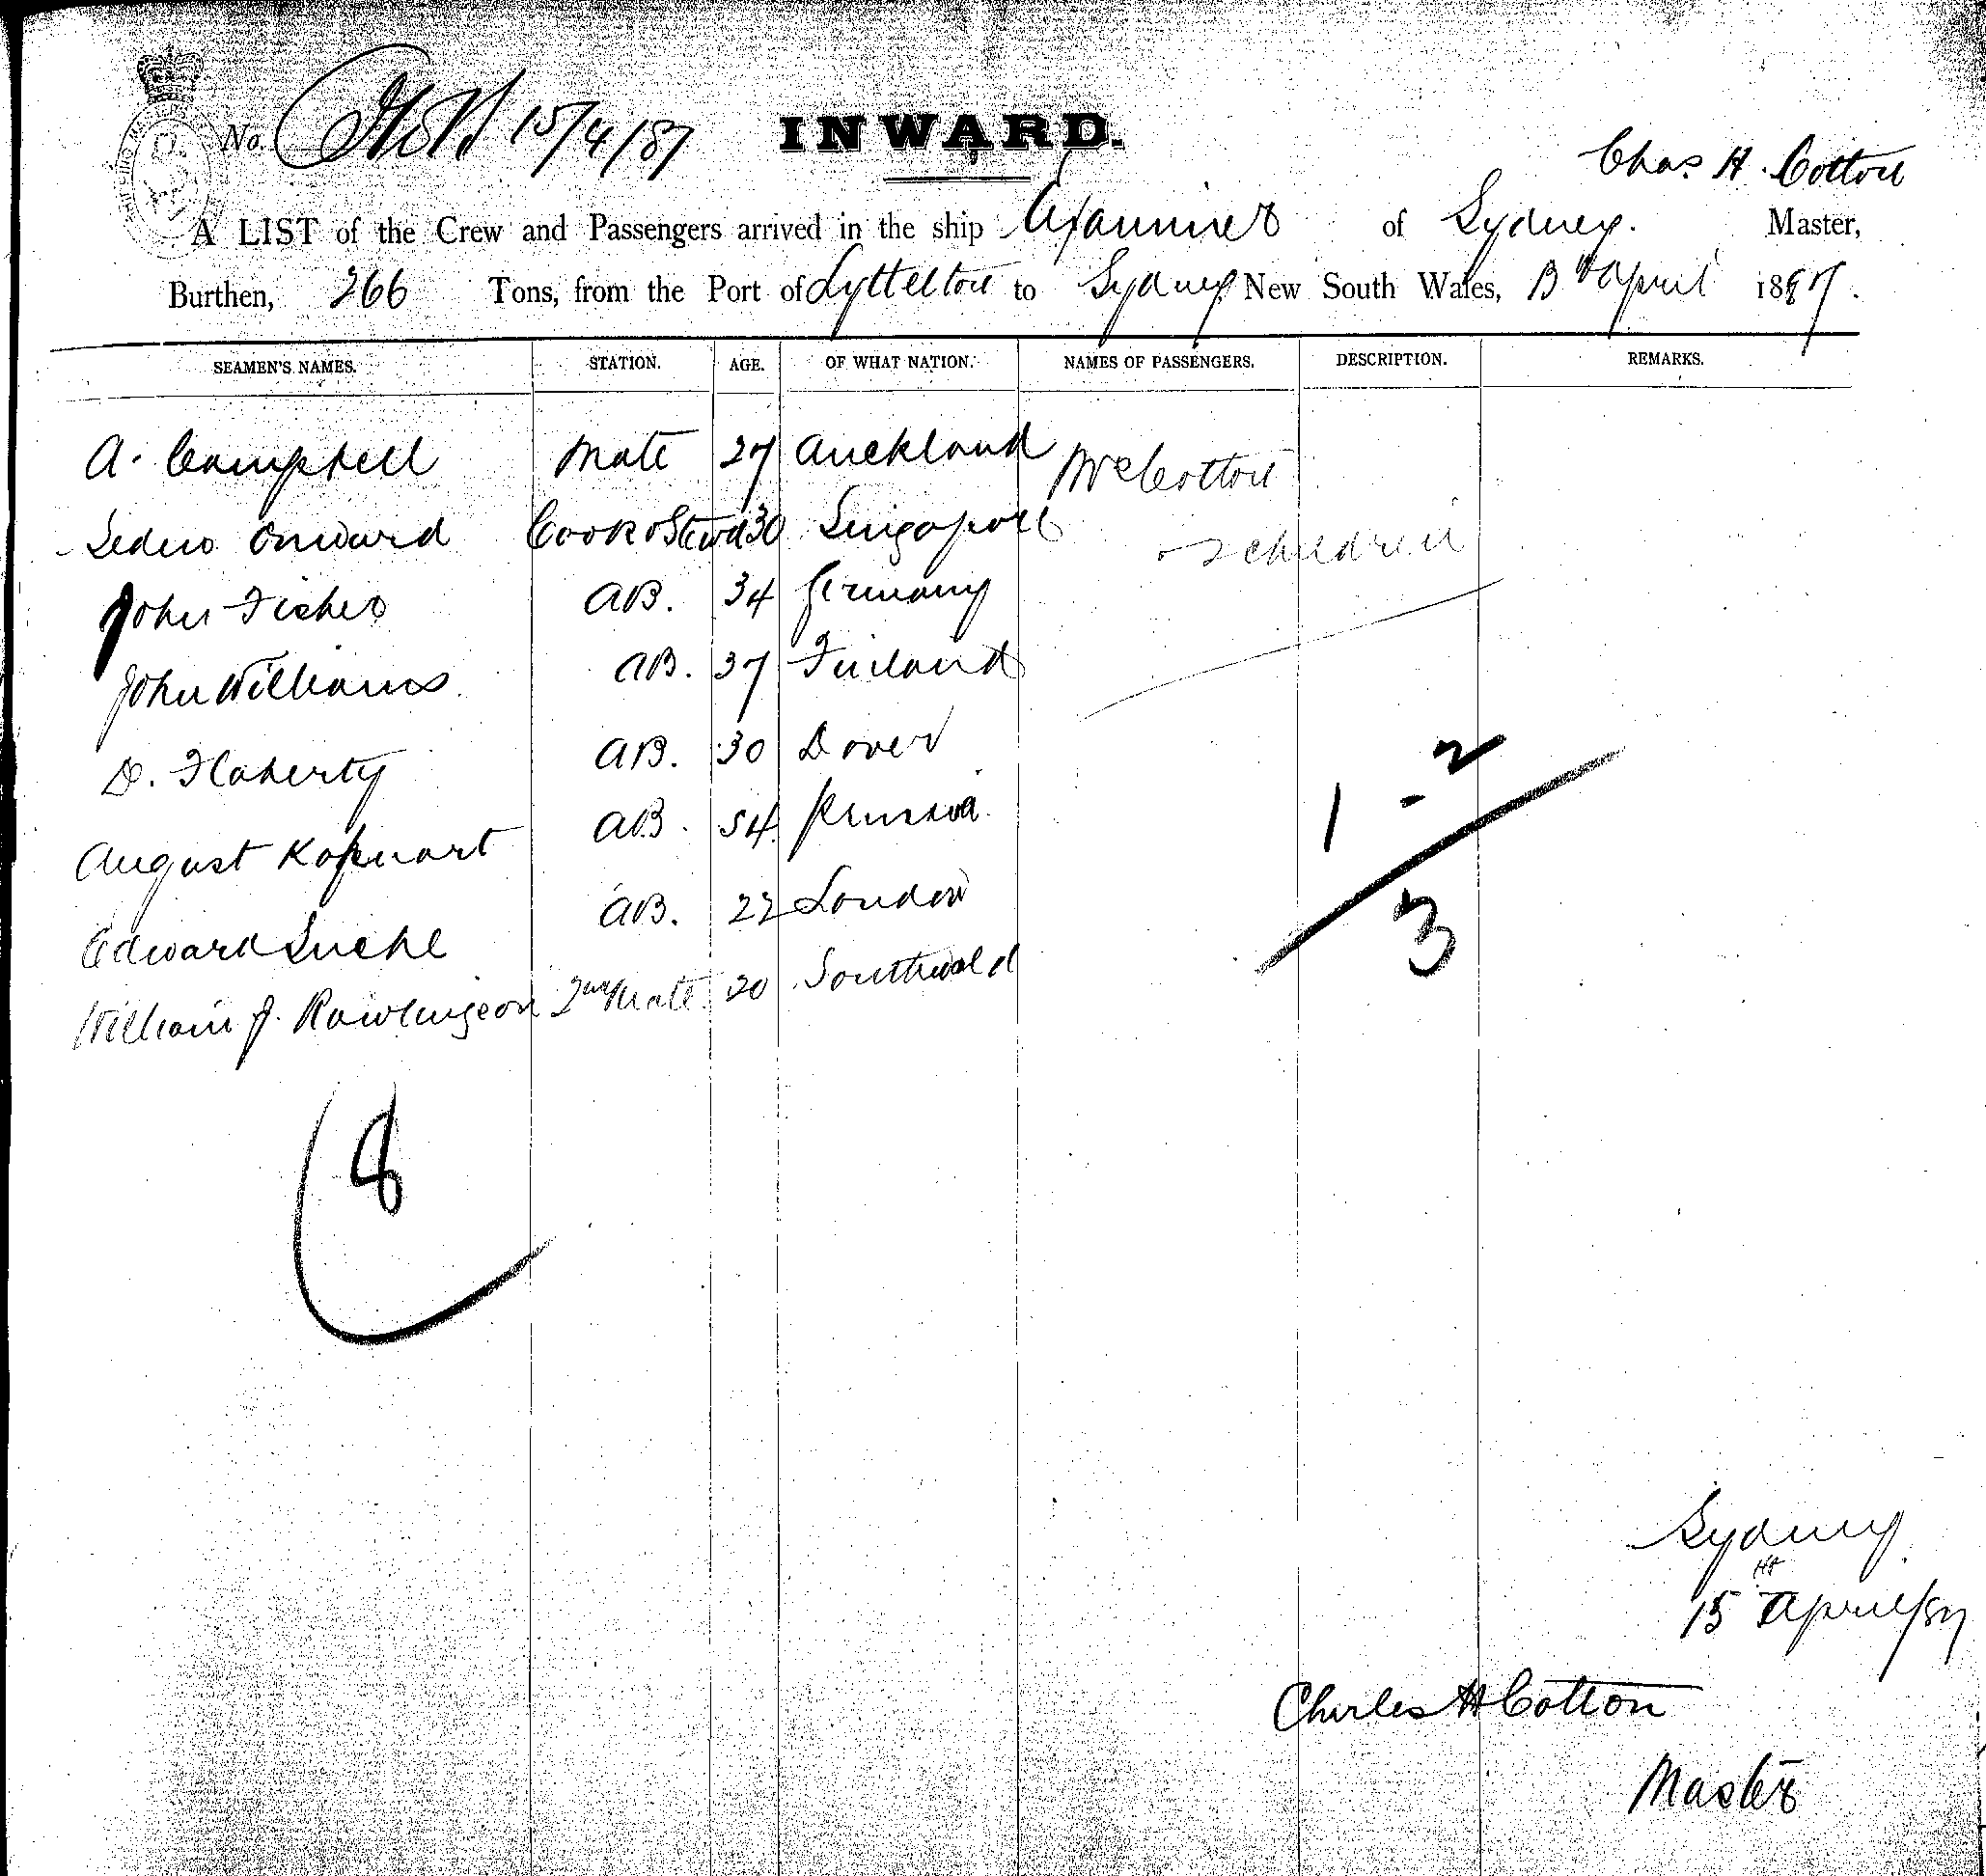 No. 15/4/87
INWARD.
Chas H. Cotton
A LIST of the Crew and Passengers arrived in the ship Examiner of Sydney. Master,
Burthen, 266 Tons, from the Port of Lyttelton to Sydney New South Wales, April 1887.
SEAMEN'S NAMES. STATION. AGE. OF WHAT NATION. NAMES OF PASSENGERS. DESCRIPTION. REMARKS.
A. Campbell Mate 27 Auckland Cotton
Onward Cook & Stwd 30 Singapore 2 children
John Fisher AB. 34 Germany
John Williams AB. 37 Finland
D. Flaherty AB. 30 Dover
August AB. 54 Prussia
Edward AB. 22 London
William J. 2nd Mate. 20 Southwold
1 - 2
3
8
Sydney
15th April/87
Charles H Cotton
Master